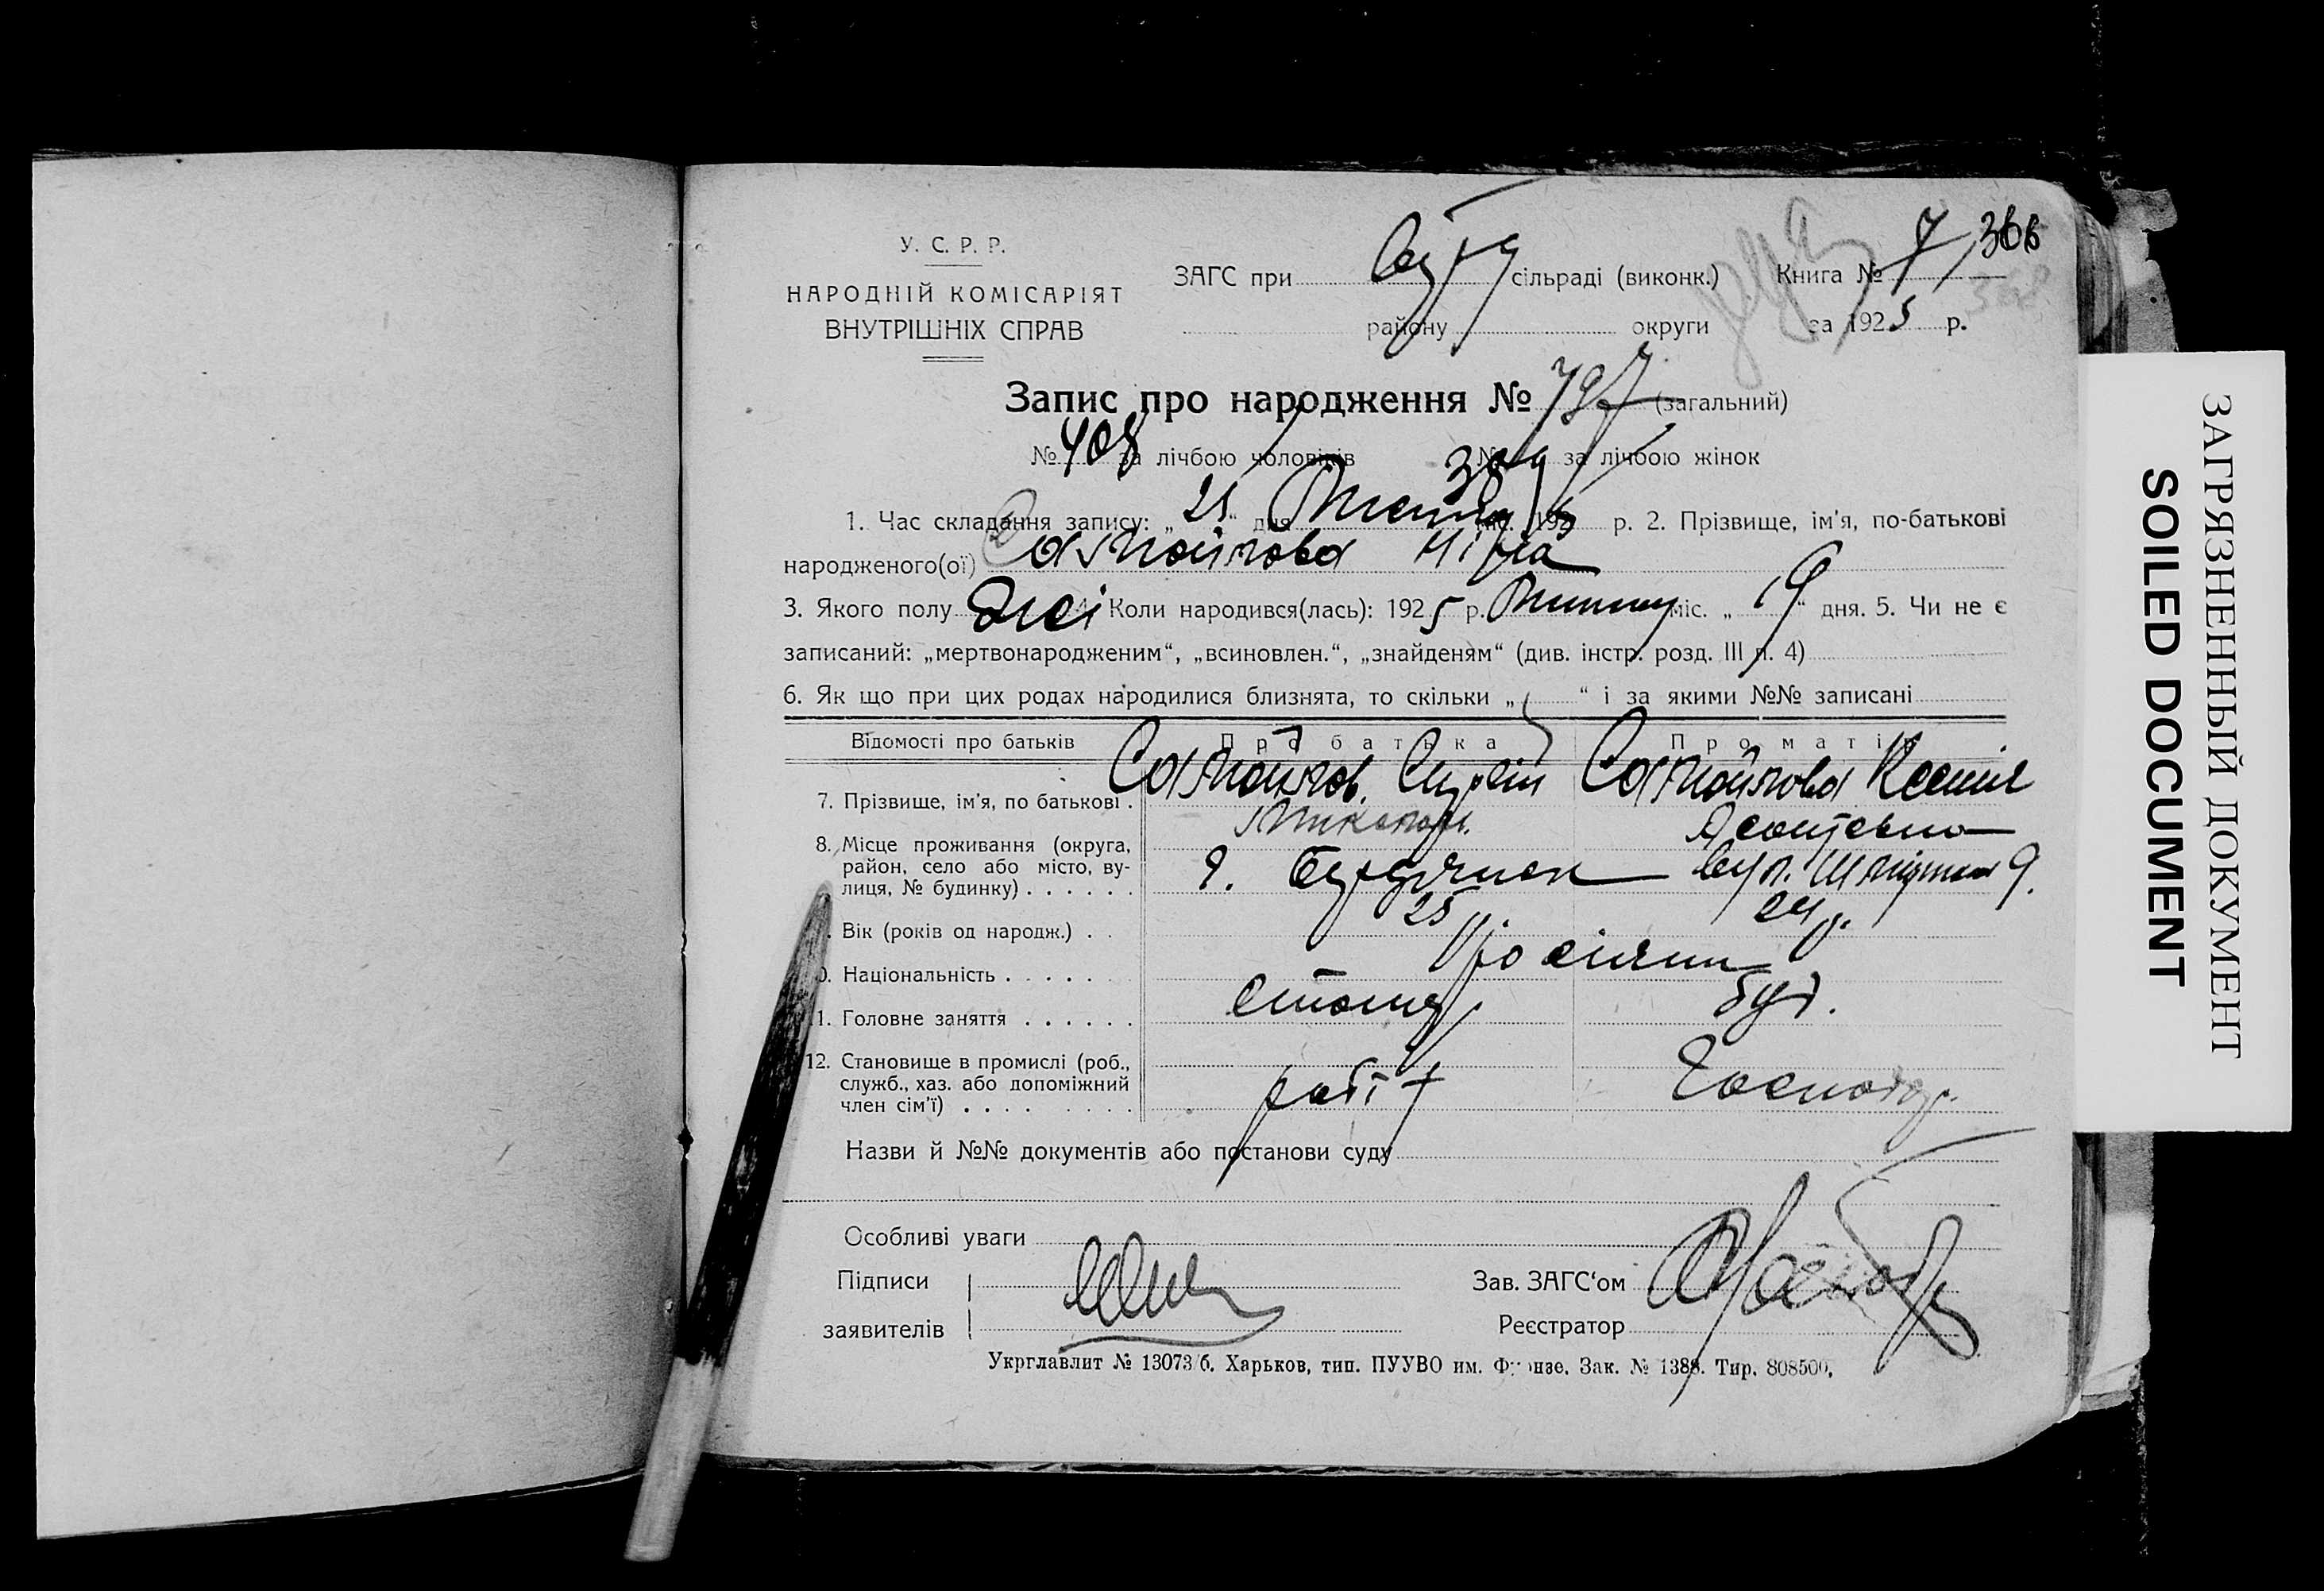 У. С. Р. Р.
НАРОДНІЙ КОМІСАРІЯТ
ВНУТРІШНІХ СПРАВ
ЗАГС при сільраді (виконк.)
району округи
Книга № 7 366
368
за 1925 р.
Запис про народження № 797 (загальний)
№ 408 за лічбою чоловіків № 389 за лічбою жінок
1. Час складання запису: „ “ дня міс. 1925 р. 2. Прізвище, ім'я, по-батькові
народженого(ої) Самойлова Ніна
3. Якого полу жі 4. Коли народився(лась): 1925 р. міс. „19“ дня. 5. Чи не є
записаний: „мертвонародженим“, „всиновлен.“, „знайденям“ (див. інстр. розд. III п. 4)
6. Як що при цих родах народилися близнята, то скільки „ “ і за якими №№ записані
Відомості про батьків Про батька Про матір
7. Прізвище, ім'я, по батькові . Самойлов Сергій Самойлова Ксенія
Миколай. Леонтевна
8. Місце проживання (округа,
район, село або місто, ву-
лиця, № будинку) . . . . . . вул. 9.
Вік (років од народж.) . . 25 24 р.
Національність . . . . . росіяни
11. Головне заняття . . . . . . столяр
12. Становище в промислі (роб.,
служб., хаз. або допоміжний
член сім'ї) . . . . робіт Господар.
Назви й №№ документів або постанови суду
Особливі уваги
Підписи
заявителів
Зав. ЗАГС‘ом
Реєстратор
Укрглавлит № 13073/б. Харьков, тип. ПУУВО им. Фрунзе. Зак. № 1388. Тир. 808500.
ЗАГРЯЗНЕННЫЙ ДОКУМЕНТ
SOILED DOCUMENT